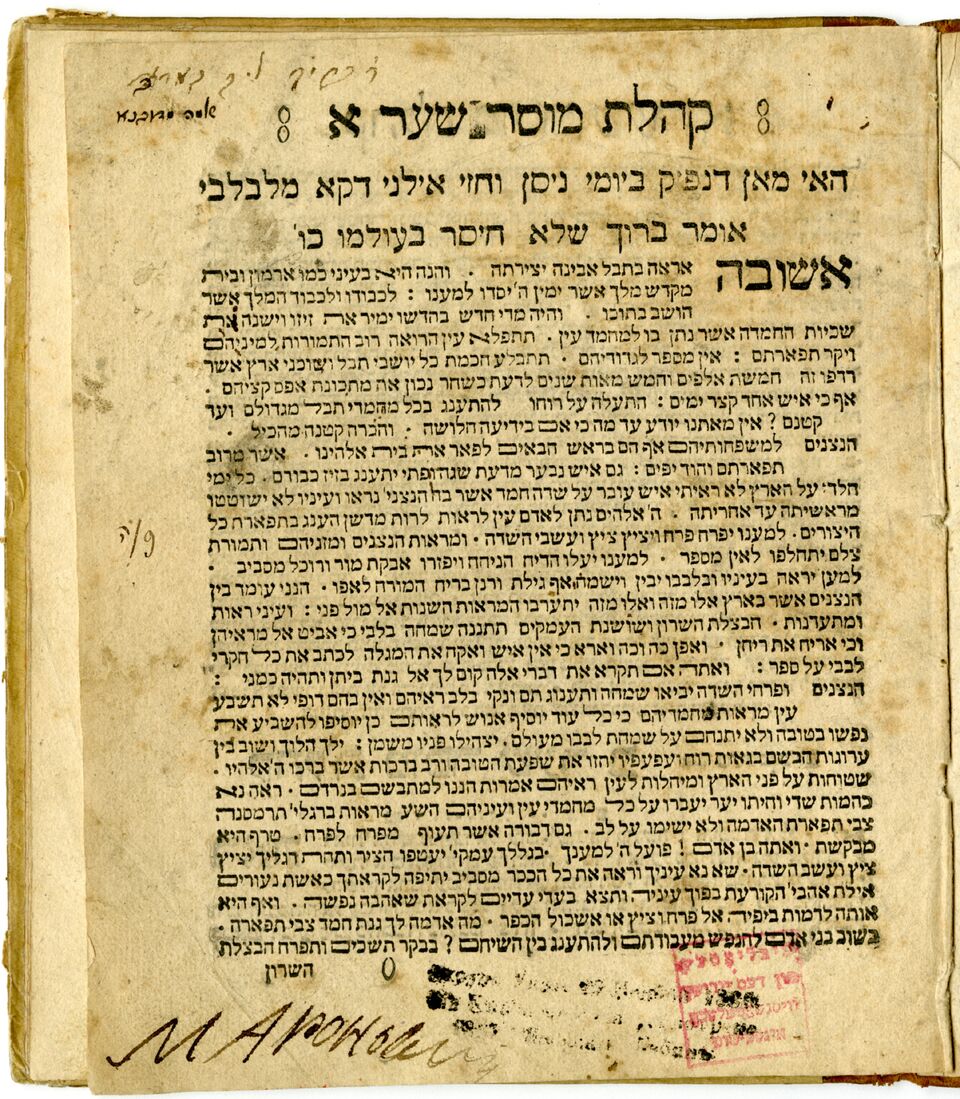 קהלת מוסר שער א
האי מאן דנפיק ביומי ניסן וחזי אילני דקא מלבלבי
אומר ברוך שלא חיסר בעולמו כו'
אשובה אראה בתבל אבינה יצירתה . והנה היא בעיני כמו ארמון ובית
מקדש מלך אשר ימין ה' יסדו למענו : לכבודו ולכבוד המלך אשר
הושב בתוכו . והיה מדי חדש בחדשו ימיר את זיוו וישנה את
שכיות החמדה אשר נתן בו למחמד עין . תתפלא עין הרואה רוב התמורות למיניהם
ויקר תפארתם : אין מספר לגדודיהם . תתבלע חכמת כל יושבי תבל ושוכני ארץ אשר
רדפו זה חמשת אלפים וחמש מאות שנים לדעת כשחר נכון את מתכונת אפס קציהם .
אף כי איש אחד קצר ימים : התעלה על רוחו להתענג בכל מחמדי תבל מגדולם ועד
קטנם ? אין מאתנו יודע עד מה כי אם בידיעה הלושה . והכרה קטנה מהכיל .
הנצנים למשפחותיהם אף הם בראש הבאים לפאר את בית אלהינו . אשר מרוב
תפארתם והוד יפים : גם איש נבער מדעת שגה ופתי יתענג בזיו כבודם . כל ימי
הלדי על הארץ לא ראיתי איש עובר על שדה חמד אשר בה הנצני' נראו ועיניו לא ישוטטו
מראשיתה עד אחריתה . ה' אלהים נתן לאדם עין לראות לרות מדשן הענג בתפארת כל
היצורים . למענו יפרח פרח ויציץ ציץ ועשבי השדה . ומראות הנצנים ומזניהם ותמורת
צלם יתחלפו לאין מספר . למענו יעלו הדיח הניחח ויפוזרו אבקת מור ורוכל מסביב .
למען יראה בעיניו ובלבבו יבין וישמח אף גילת ורנן בריח המורח לאפו . הנני עומד בין
הנצנים אשר בארץ אלו מזה ואלו מזה יתערבו המראות השנות אל מול פני : ועיני ראות
ומתעדנות . חבצלת השרון ושושנת העמקים תתננה שמחה בלבי כי אביט אל מראיהן
וכי אריח את ריחן . ואפן כה וכה וארא כי אין איש ואקח את המגלה לכתב את כל הקרי
לבבי על ספר : ואתה אם תקרא את דברי אלה קום לך אל גנת ביתן ותהיה כמני :
הנצנים ופרחי השדה יביאו שמחה ותענוג תם ונקי בלב ראיהם ואין בהם דופי לא תשבע
עין מראות מחמדיהם כי כל עוד יוסיף אנוש לראותם כן יוסיפו להשביע את
נפשו בטובה ולא יתנחם על שמחת לבבו מעולם . יצהילו פניו משמן : ילך הלוך ושוב בין
ערוגות הבשם בגאות רוח ועפעפיו יחזו את שפעת הטובה ורב ברכות אשר ברכו ה' אלהיו .
שטוחות על פני הארץ ומיחלות לעין ראיהם אמרות הננו למתבשם בנרדם . ראה נא
בהמות שדי וחיתו יער יעברו על כל מחמדי עין ועיניהם השע מראות ברגלי' תרמסנה
צבי תפארת האדמה ולא ישימו על לב . גם דבורה אשר תעוף מפרח לפרח . טרף היא
מבקשת . ואתה בן אדם ! פועל ה' למענך . בגללך עמקי' יעטפו הציר ותחת רגליך יציץ
ציץ ועשב השדה . שא נא עיניך וראה את כל הככר מסביב יתיפה לקראתך כאשת נעורים
אילת אהבי' הקורעת בפוך עיניה ותצא בעדי עדיים לקראת שאהבה נפשה . ואף היא
אותה לדמות ביפיה אל פרח וציץ או אשכול הכפר . מה אדמה לך גנת חמד צבי תפארה .
בשוב בני אדם לחנפש מעבודתם ולהתענג בין השיחם ? בבקר תשכים ותפרח חבצלת
השרון